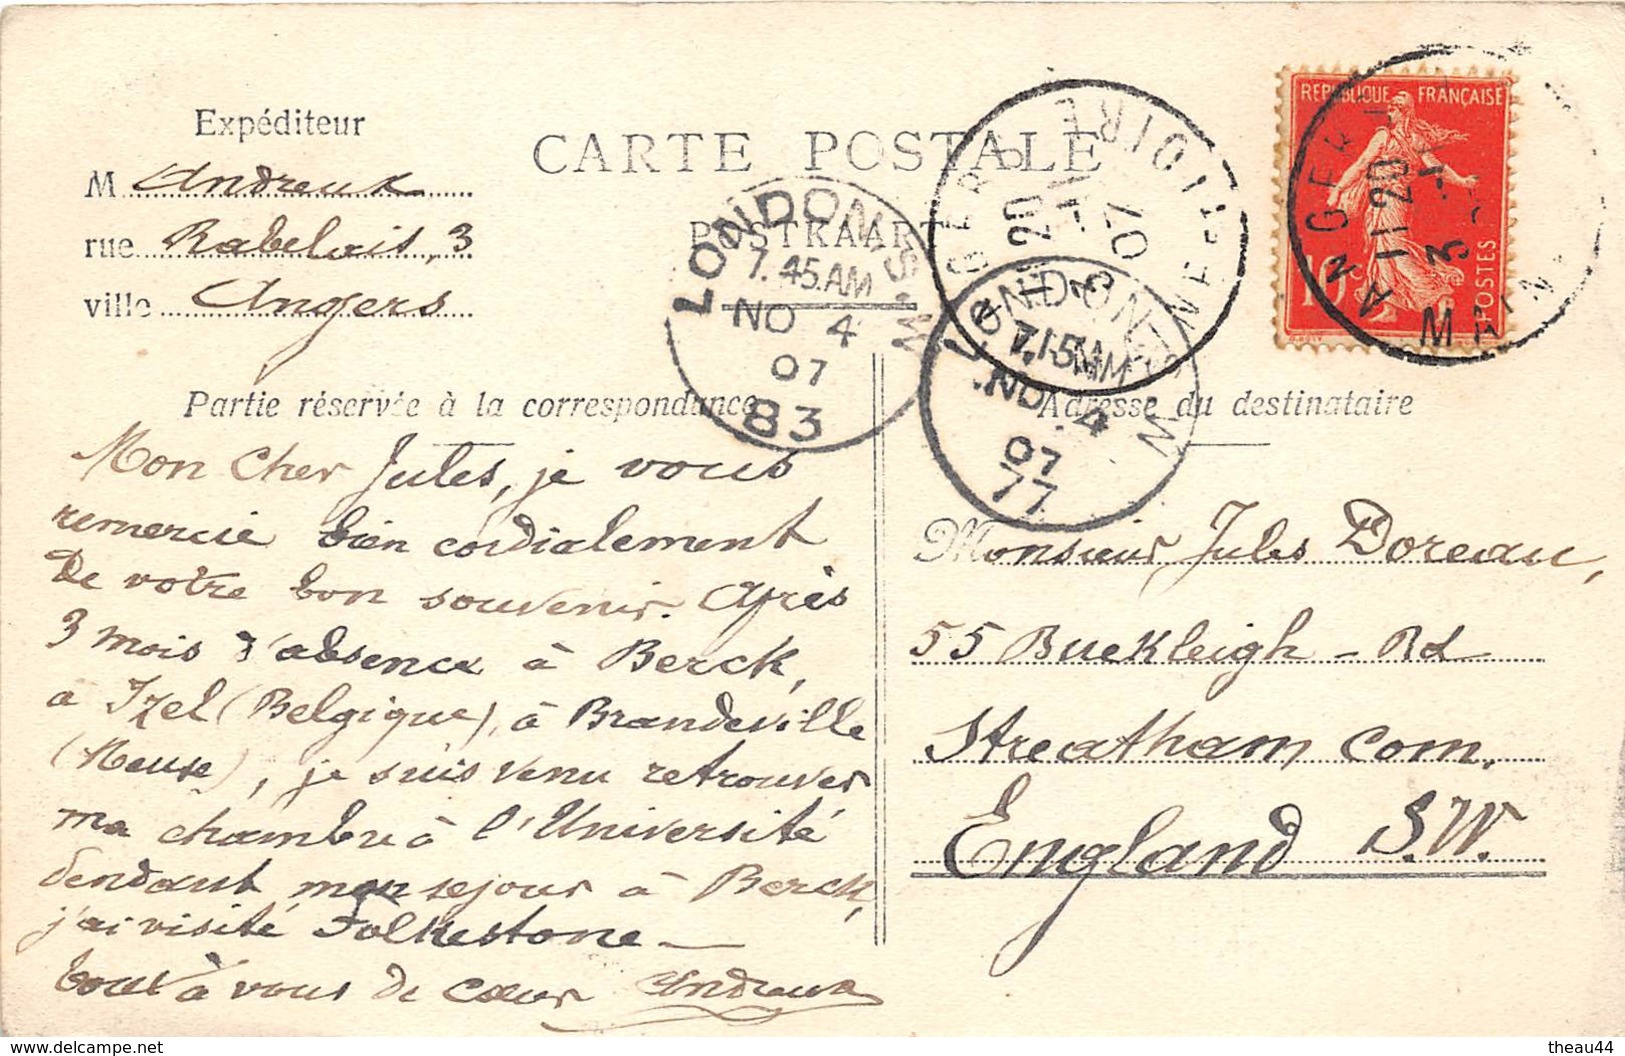 Expéditeur
M Andreux
rue Rabelais, 3
ville Angers
CARTE POSTALE
POSTKAART
LONDON. S.W
7.45.AM
NO 4
07
83
LONDON. S.W
7.15.AM
NO 4
07
77
ANGERS
11 20
3 - 11
07
MAINE-ET-LOIRE
REPUBLIQUE FRANÇAISE
10
POSTES
ANGERS
11 20
3 - 11
MAINE
Partie réservée à la correspondance
Adresse du destinataire
Mon Cher Jules, je vous
remercie bien cordialement
de votre bon souvenir. Après
3 mois d'absence à Berck,
à Izel (Belgique), à Brandeville
(Meuse), je suis venu retrouver
ma chambre à l'Université
Pendant mon sejour à Berck,
j'ai visité Folkestone —
tout à vous de cœur Andreux
Monsieur Jules Doreau,
55 Buckleigh - Rd
Streatham Com.
England S.W.
delcampe.net
theau44